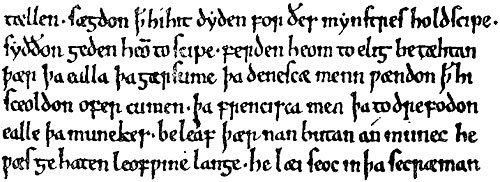 tællen · sægdon ꝥ hi hit dyden for ðes mynstres holdscipe ·
syððon geden heō to scipe · ferden heom to elig betæhtan
þær þa ealla þa gærsume þa denescæ menn ƿændon ꝥ hi
sceoldon ofer cumen · þa frencisca men þa todrefodon
ealle þa munekes · beleaf þær nan butan án munec he
ƿæs gehaten leofƿine lange · he læi seoc in þa secræman